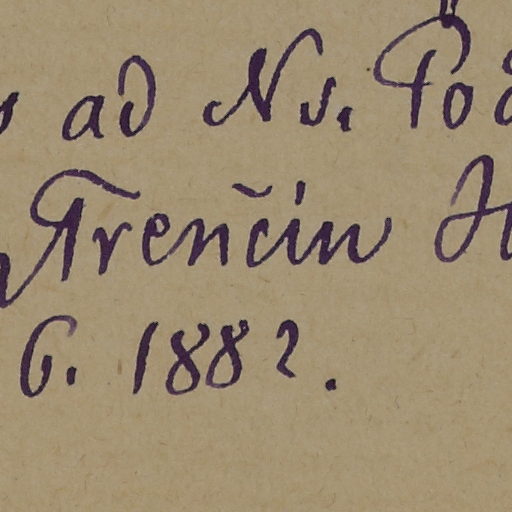 ad Ns. Pod
Trenčin
6. 1882.